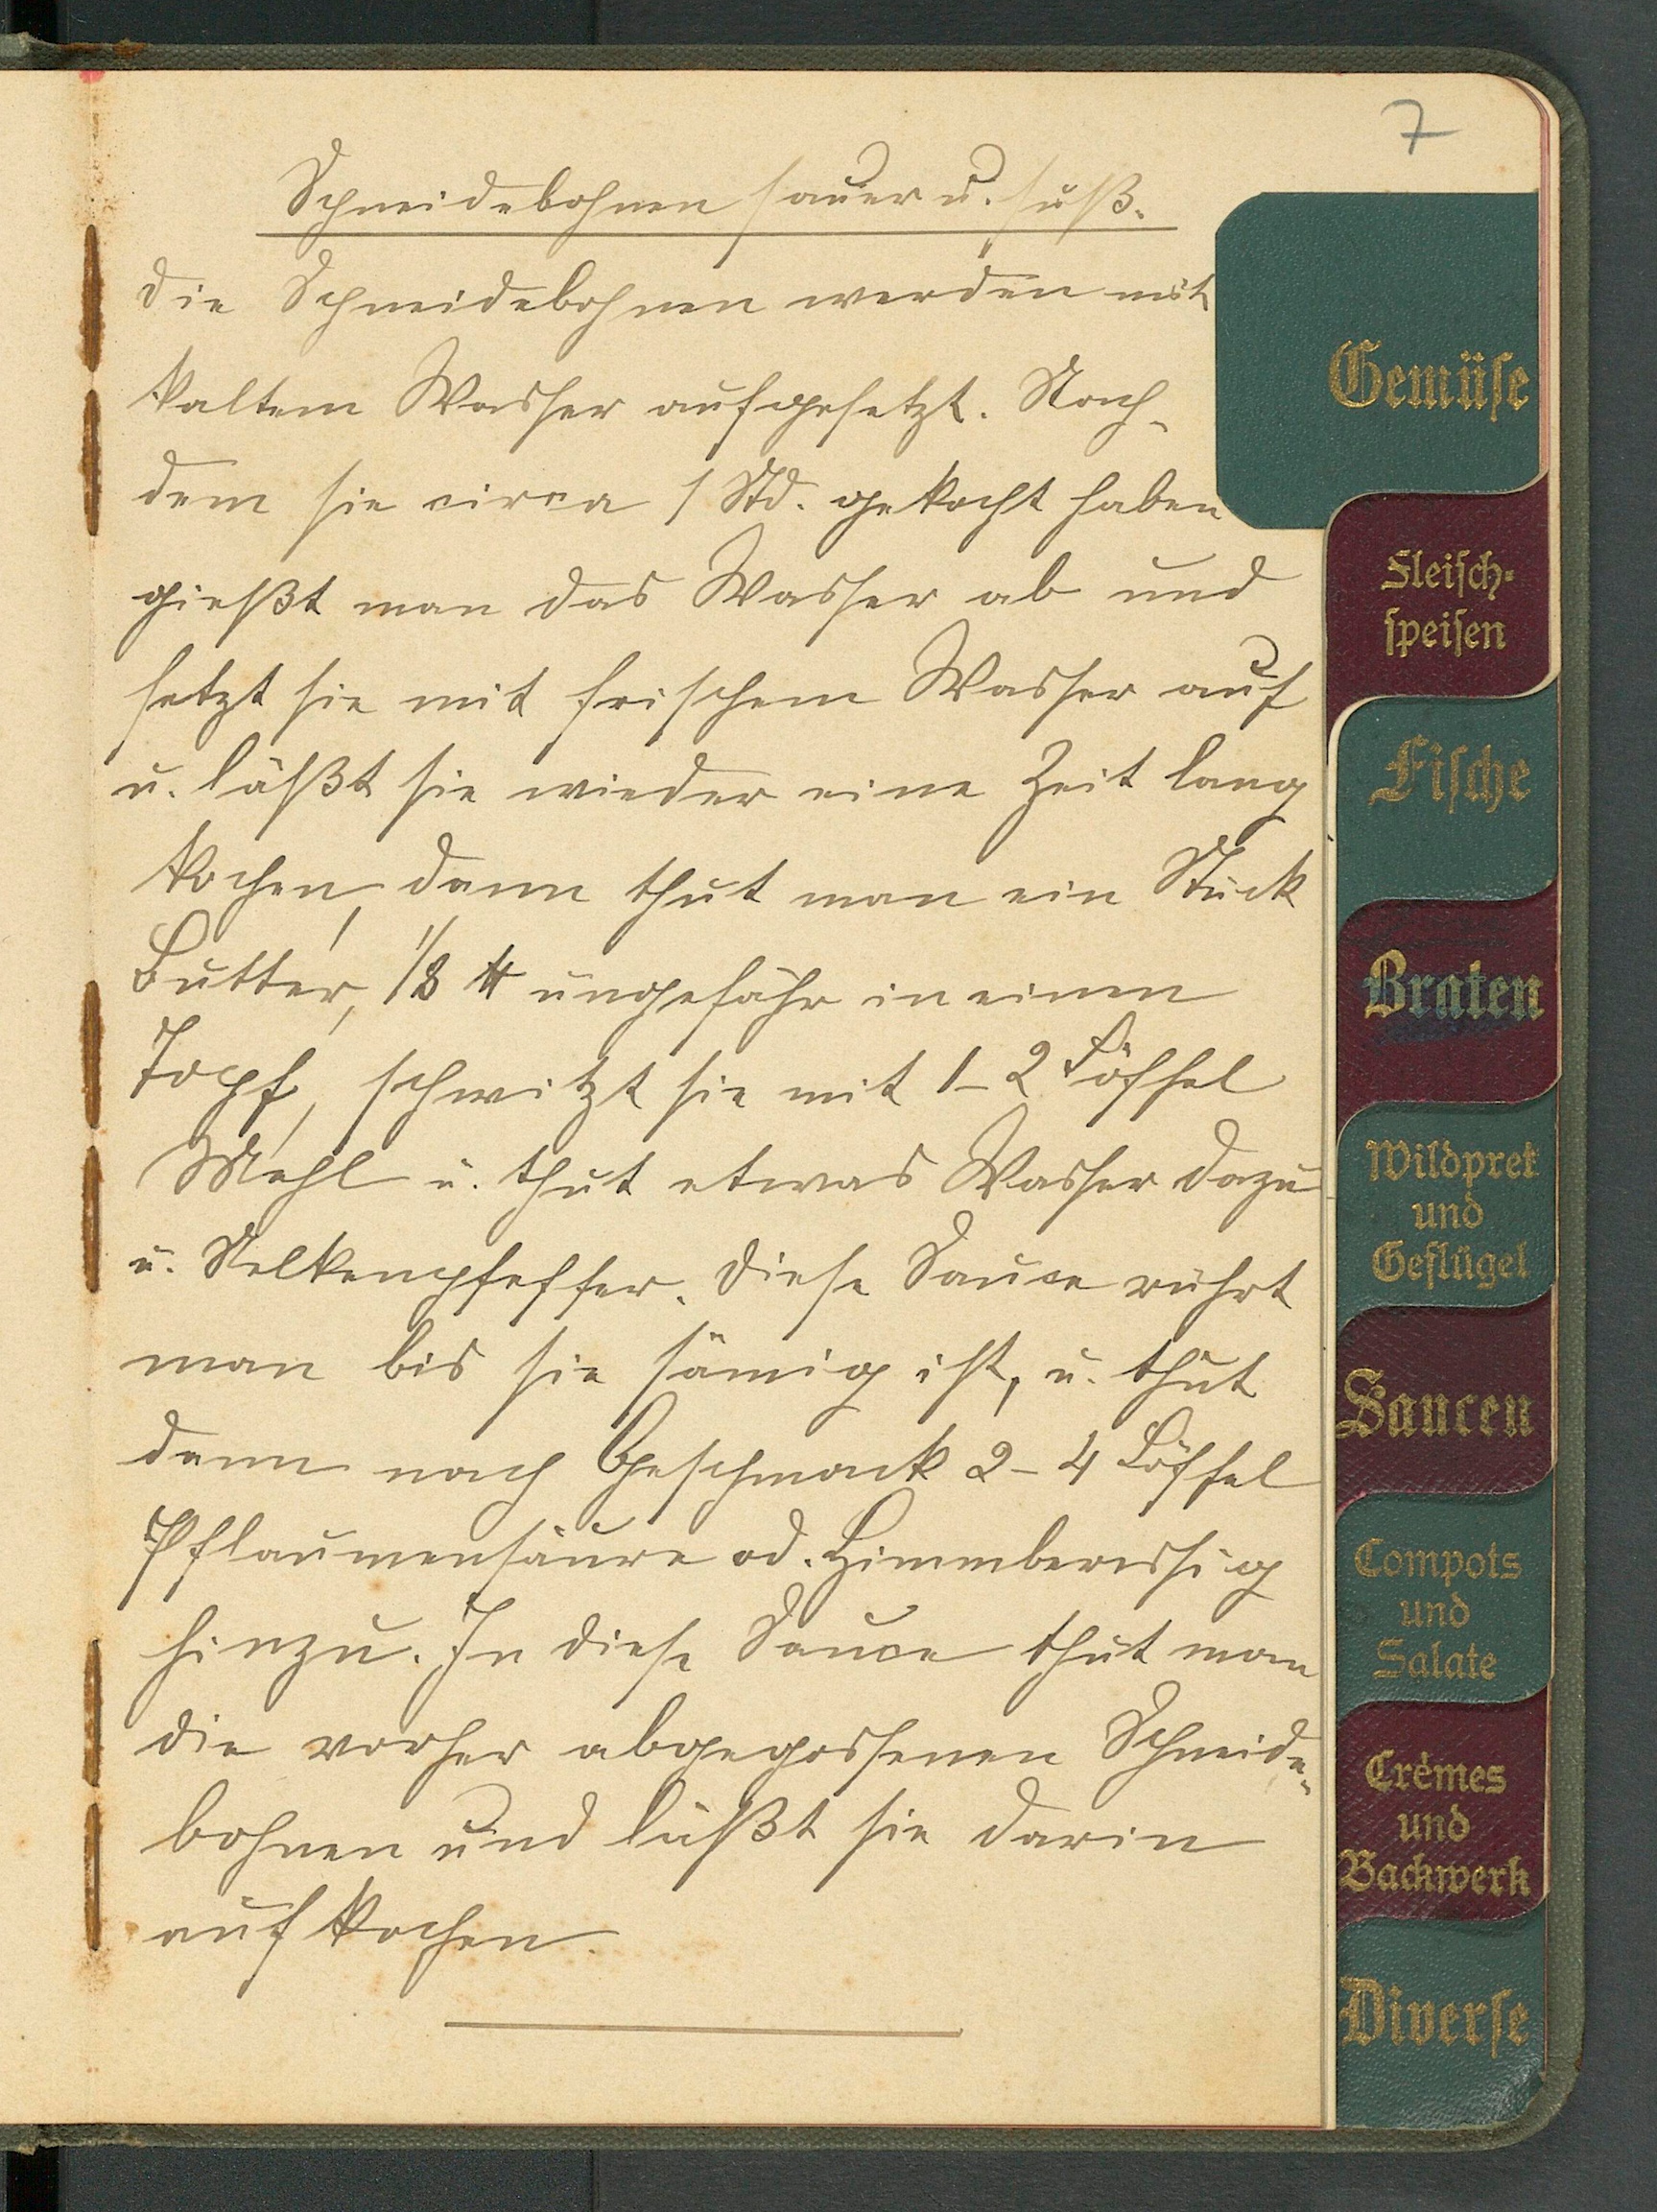 7
Schneidebohnen sauer u. süß.
Die Schneidebohnen werden mit
kaltem Wasser aufgesetzt. Nach-
dem sie circa 1 Std. gekocht haben
gießt man das Wasser ab und
setzt sie mit frischem Wasser auf
u. läßt sie wieder eine Zeit lang
kochen, dann thut man ein Stück
Butter, 1/8 ℔ ungefähr in einen
Topf, schwitzt sie mit 1-2 Löffel
Mehl u. thut etwas Wasser dazu
u. Nelkenpfeffer. Diese Sauce rührt
man bis sie sämig ist, u. thut
dann nach Geschmack 2-4 Löffel
Pflaumensäure od. Himmberessig
hinzu. In diese Sauce thut man
die vorher abgegossenen Schneide-
bohnen und läßt sie darin
aufkochen.
Gemüse
Fleisch-
speisen
Fische
Braten
Wildpret
und
Geflügel
Saucen
Compots
und
Salate
Crèmes
und
Backwerk
Diverse